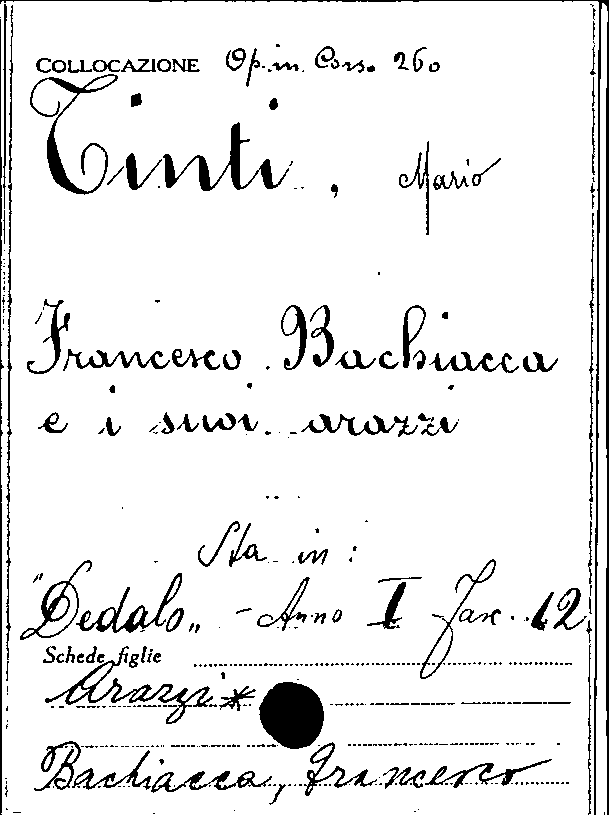 COLLOCAZIONE Op. in Cors. 260
Tinti, Mario
Francesco Bachiacca
e i suoi arazzi
Sta in:
"Dedalo„ - Anno I Fasc. 12
Schede figlie
Arazzi *
Bachiacca, Francesco